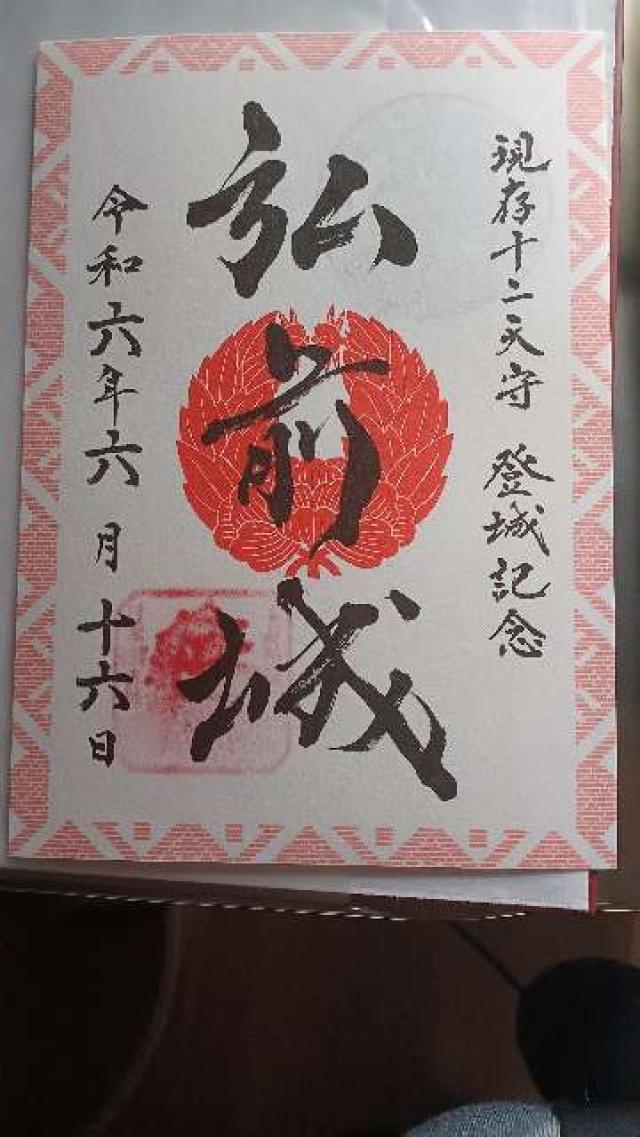 現存十二天守 登城記念
弘前城
令和六年六月十六日